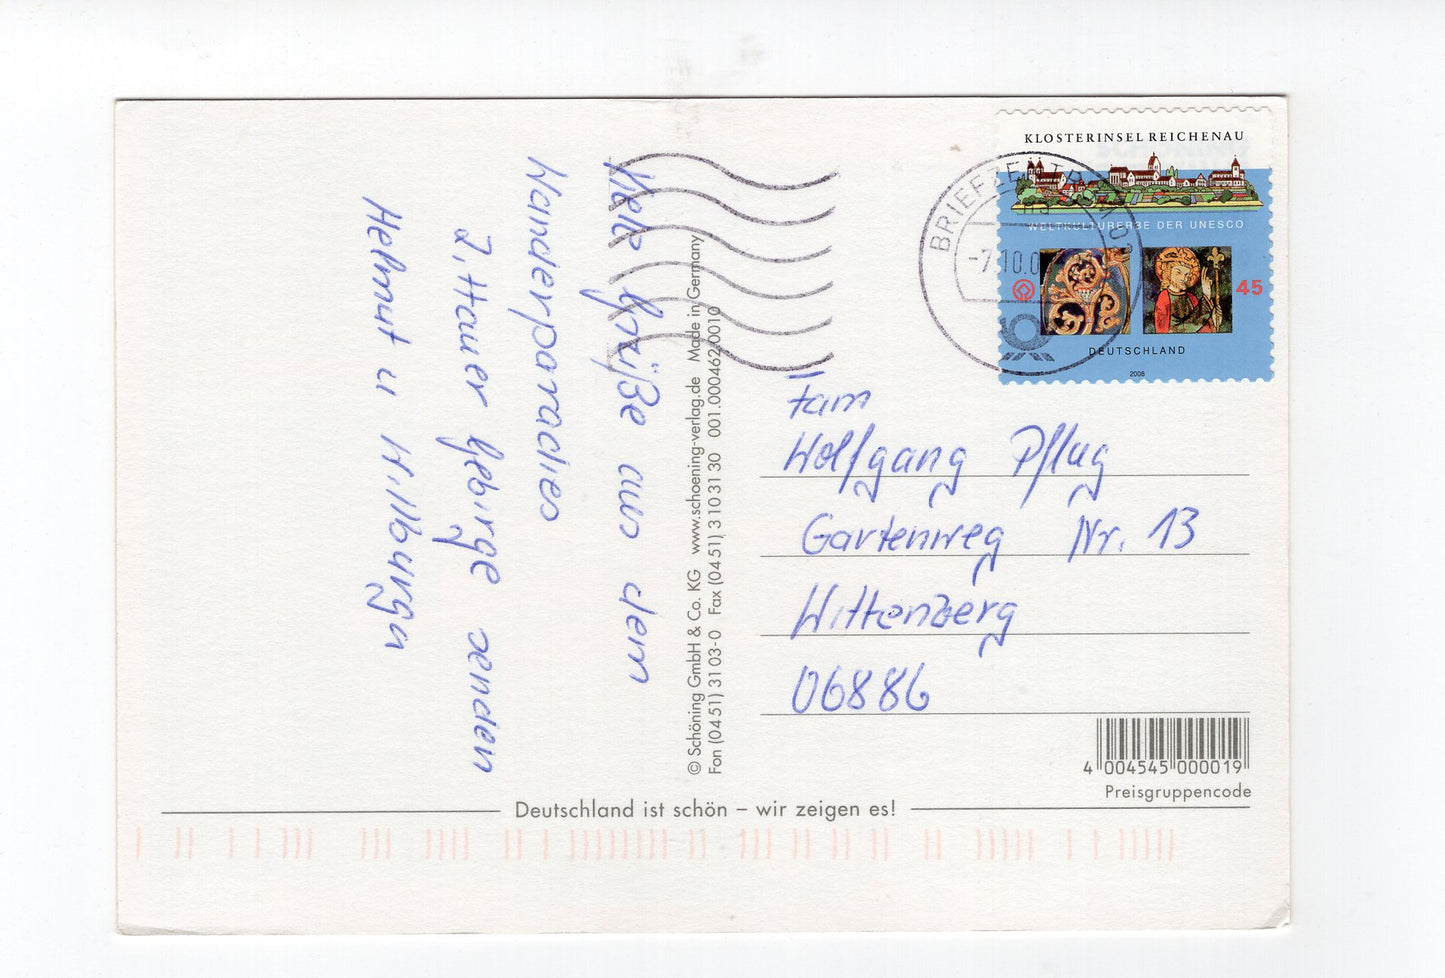 Viele Grüße aus dem
Wanderparadies
Z,ttauer Gebirge senden
Helmut u Willburga
© Schöning GmbH & Co. KG www.schoening-verlag.de Made in Germany
Fon (04 51) 31 03-0 Fax (04 51) 3 10 31 30 001.000462.0010
KLOSTERINSEL REICHENAU
WELTKULTURERBE DER UNESCO
45
DEUTSCHLAND
2008
BRIEFZENTRUM 03
-7.10.0
Fam
Wolfgang Pflug
Gartenweg Nr. 13
Wittenberg
06886
4 004545 000019
Preisgruppencode
Deutschland ist schön – wir zeigen es!